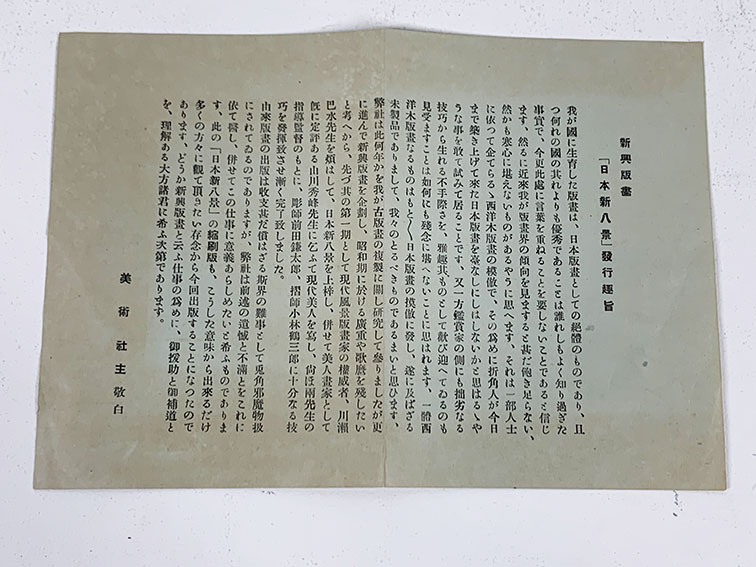 新興版畫
「日本新八景」發行趣旨
我が國に生育した版畫は、日本版畫としての絕體のものであり、且
つ何れの國の其れよりも優秀であることは誰れしもよく知り過ぎた
事實で、今更此處に言葉を重ねることを要しないことであると信じ
ます、然るに近來我が版畫界の傾向を見ますると甚だ飽き足らない、
然かも寒心に堪えないものがあるやうに思へます、それは一部人士
に依つて企てらるゝ西洋木版畫の模倣で、その爲めに折角人が今日
まで築き上げて來た日本版畫を臺なしにしはしないかと思はるゝや
うな事を敢て試みて居ることです、又一方鑑賞家の側にも拙劣なる
技巧から生れる不手際さを、雅趣其ものとして歡び迎へてゐるのも
見受ますことは如何にも殘念に堪へないことに思はれます、一體西
洋木版畫なるものはもと〳〵日本版畫の模倣に發し、遂に及ばざる
未製品でありまして、我々のとるべきものであるまいと思ひます、
弊社は此何年かを我が古版畫の複製に關し研究して參りましたが更
に進んで新興版畫を企劃し、昭和期に於ける廣重や歌麿を殘したい
と考へから、先づ其の第一期として現代風景版畫家の權威者、川瀨
巴水先生を煩はして、日本新八景を上梓し、併せて美人畫家として
旣に定評ある山川秀峰先生に乞ふて現代美人を寫し、尙ほ兩先生の
指導監督のもとに、彫師前田鎌太郎、摺師小林鶴三郎に十分なる技
巧を發揮致させ漸く完了致しました。
由來版畫の出版は收支甚だ償はざる斯界の難事として兎角邪魔物扱
にされてゐるのでありますが、弊社は前述の遺憾と不滿とをこれに
依て醫し、併せてこの仕事に意義あらしめたいと希ふものでありま
す、此の「日本新八景」の縮刷版も、こうした意味から出來るだけ
多くの方々に觀て頂きたい存念から今回出版することになつたので
あります、どうか新興版畫と云ふ仕事の爲めに、御援助と御補道と
を、理解ある大方諸君に希ふ次第であります。
美術社主 敬白